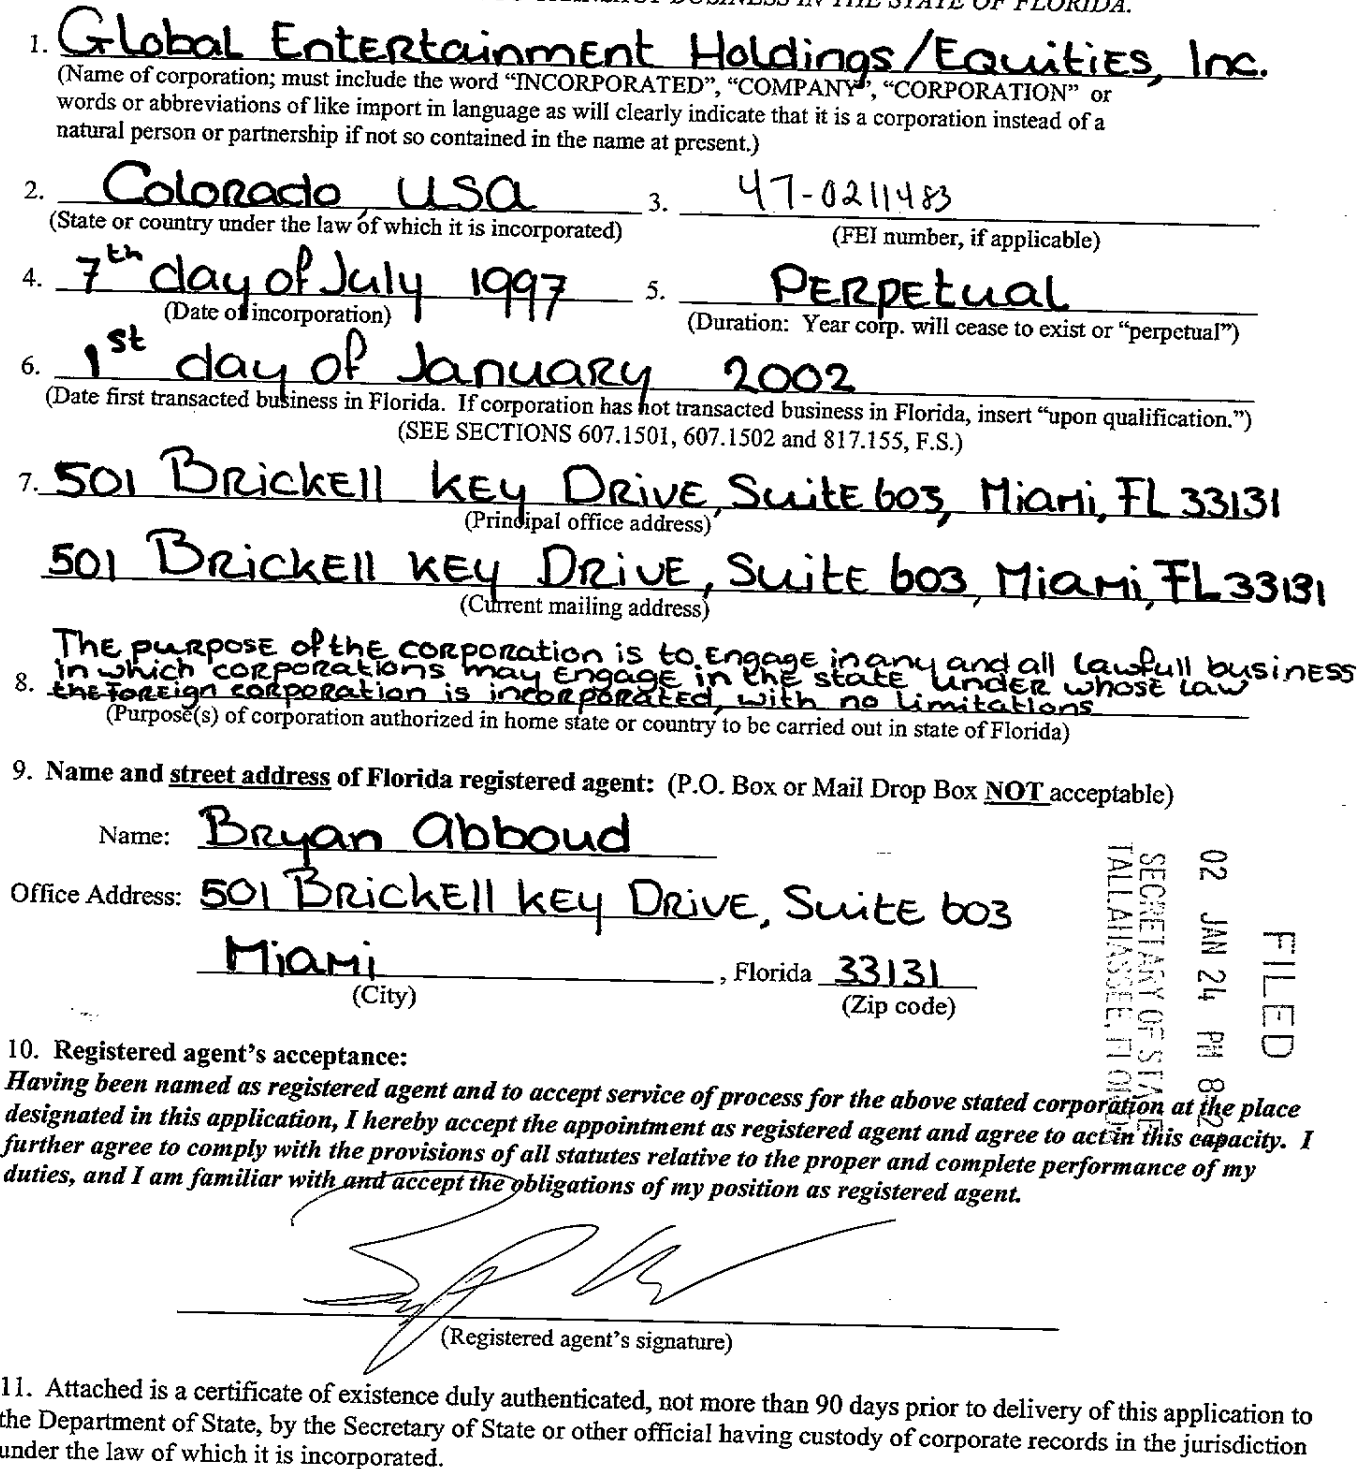 BUSINESS IN THE STATE OF FLORIDA.
1. Global Entertainment Holdings/Equities, Inc.
(Name of corporation; must include the word “INCORPORATED”, “COMPANY”, “CORPORATION” or
words or abbreviations of like import in language as will clearly indicate that it is a corporation instead of a
natural person or partnership if not so contained in the name at present.)
2. Colorado, USA 3. 47-0211483
(State or country under the law of which it is incorporated) (FEI number, if applicable)
4. 7th day of July 1997 5. Perpetual
(Date of incorporation) (Duration: Year corp. will cease to exist or “perpetual”)
6. 1st day of January 2002
(Date first transacted business in Florida. If corporation has not transacted business in Florida, insert “upon qualification.”)
(SEE SECTIONS 607.1501, 607.1502 and 817.155, F.S.)
7. 501 Brickell Key Drive, Suite 603, Miami, FL 33131
(Principal office address)
501 Brickell Key Drive, Suite 603, Miami, FL 33131
(Current mailing address)
The purpose of the corporation is to engage in any and all lawfull business
in which corporations may engage in the state under whose law
8. the foreign corporation is incorporated, with no limitations
(Purpose(s) of corporation authorized in home state or country to be carried out in state of Florida)
9. Name and street address of Florida registered agent: (P.O. Box or Mail Drop Box NOT acceptable)
Name: Bryan Abboud
Office Address: 501 Brickell Key Drive, Suite 603
Miami, Florida 33131
(City) (Zip code)
FILED
02 JAN 24 PM 8:
SECRETARY OF STATE
TALLAHASSEE, FLO
10. Registered agent’s acceptance:
Having been named as registered agent and to accept service of process for the above stated corporation at the place
designated in this application, I hereby accept the appointment as registered agent and agree to act in this capacity. I
further agree to comply with the provisions of all statutes relative to the proper and complete performance of my
duties, and I am familiar with and accept the obligations of my position as registered agent.
(Registered agent’s signature)
11. Attached is a certificate of existence duly authenticated, not more than 90 days prior to delivery of this application to
the Department of State, by the Secretary of State or other official having custody of corporate records in the jurisdiction
under the law of which it is incorporated.